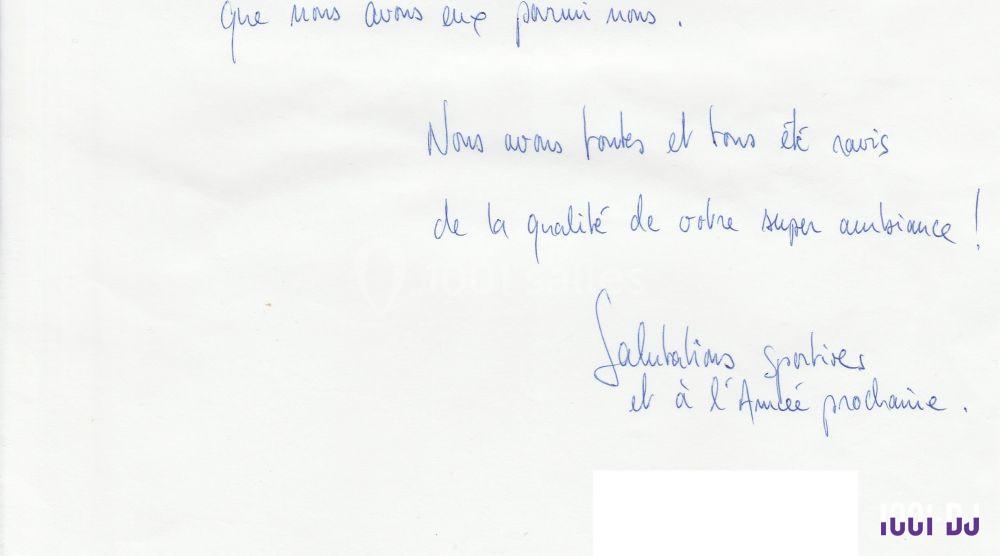 que nous avons eux parmi nous.
Nous avons toutes et tous été ravis
de la qualité de votre super ambiance !
1001 salles
Salutations sportives
et à l'Année prochaine.
1001 DJ